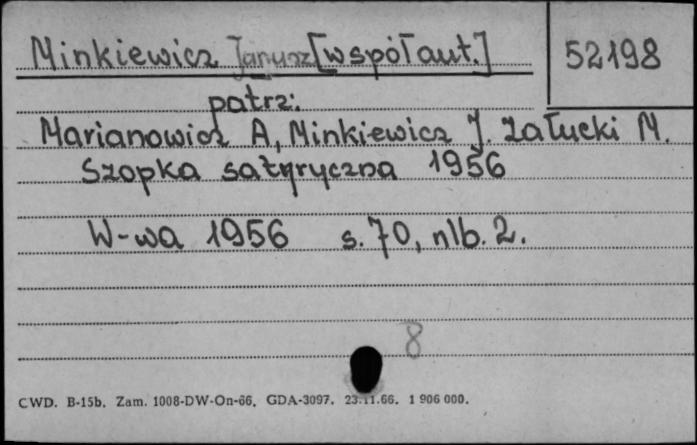 Minkiewicz Janusz [współaut.] 52198
patrz:
Marianowicz A, Minkiewicz J. Załucki M.
Szopka satyryczna 1956
W-wa 1956 s. 70, nlb. 2.
8
CWD. B-15b. Zam. 1008-DW-On-66. GDA-3097. 23.11.66. 1 906 000.